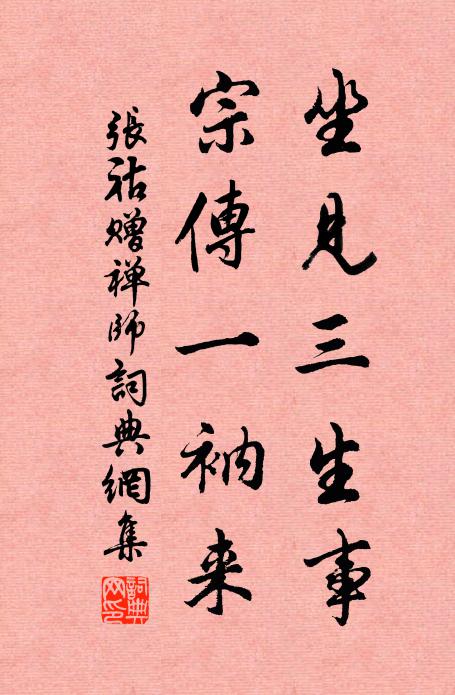 坐見三生事
宗傳一衲来
張祜贈禅師詞典網集
詞典網印